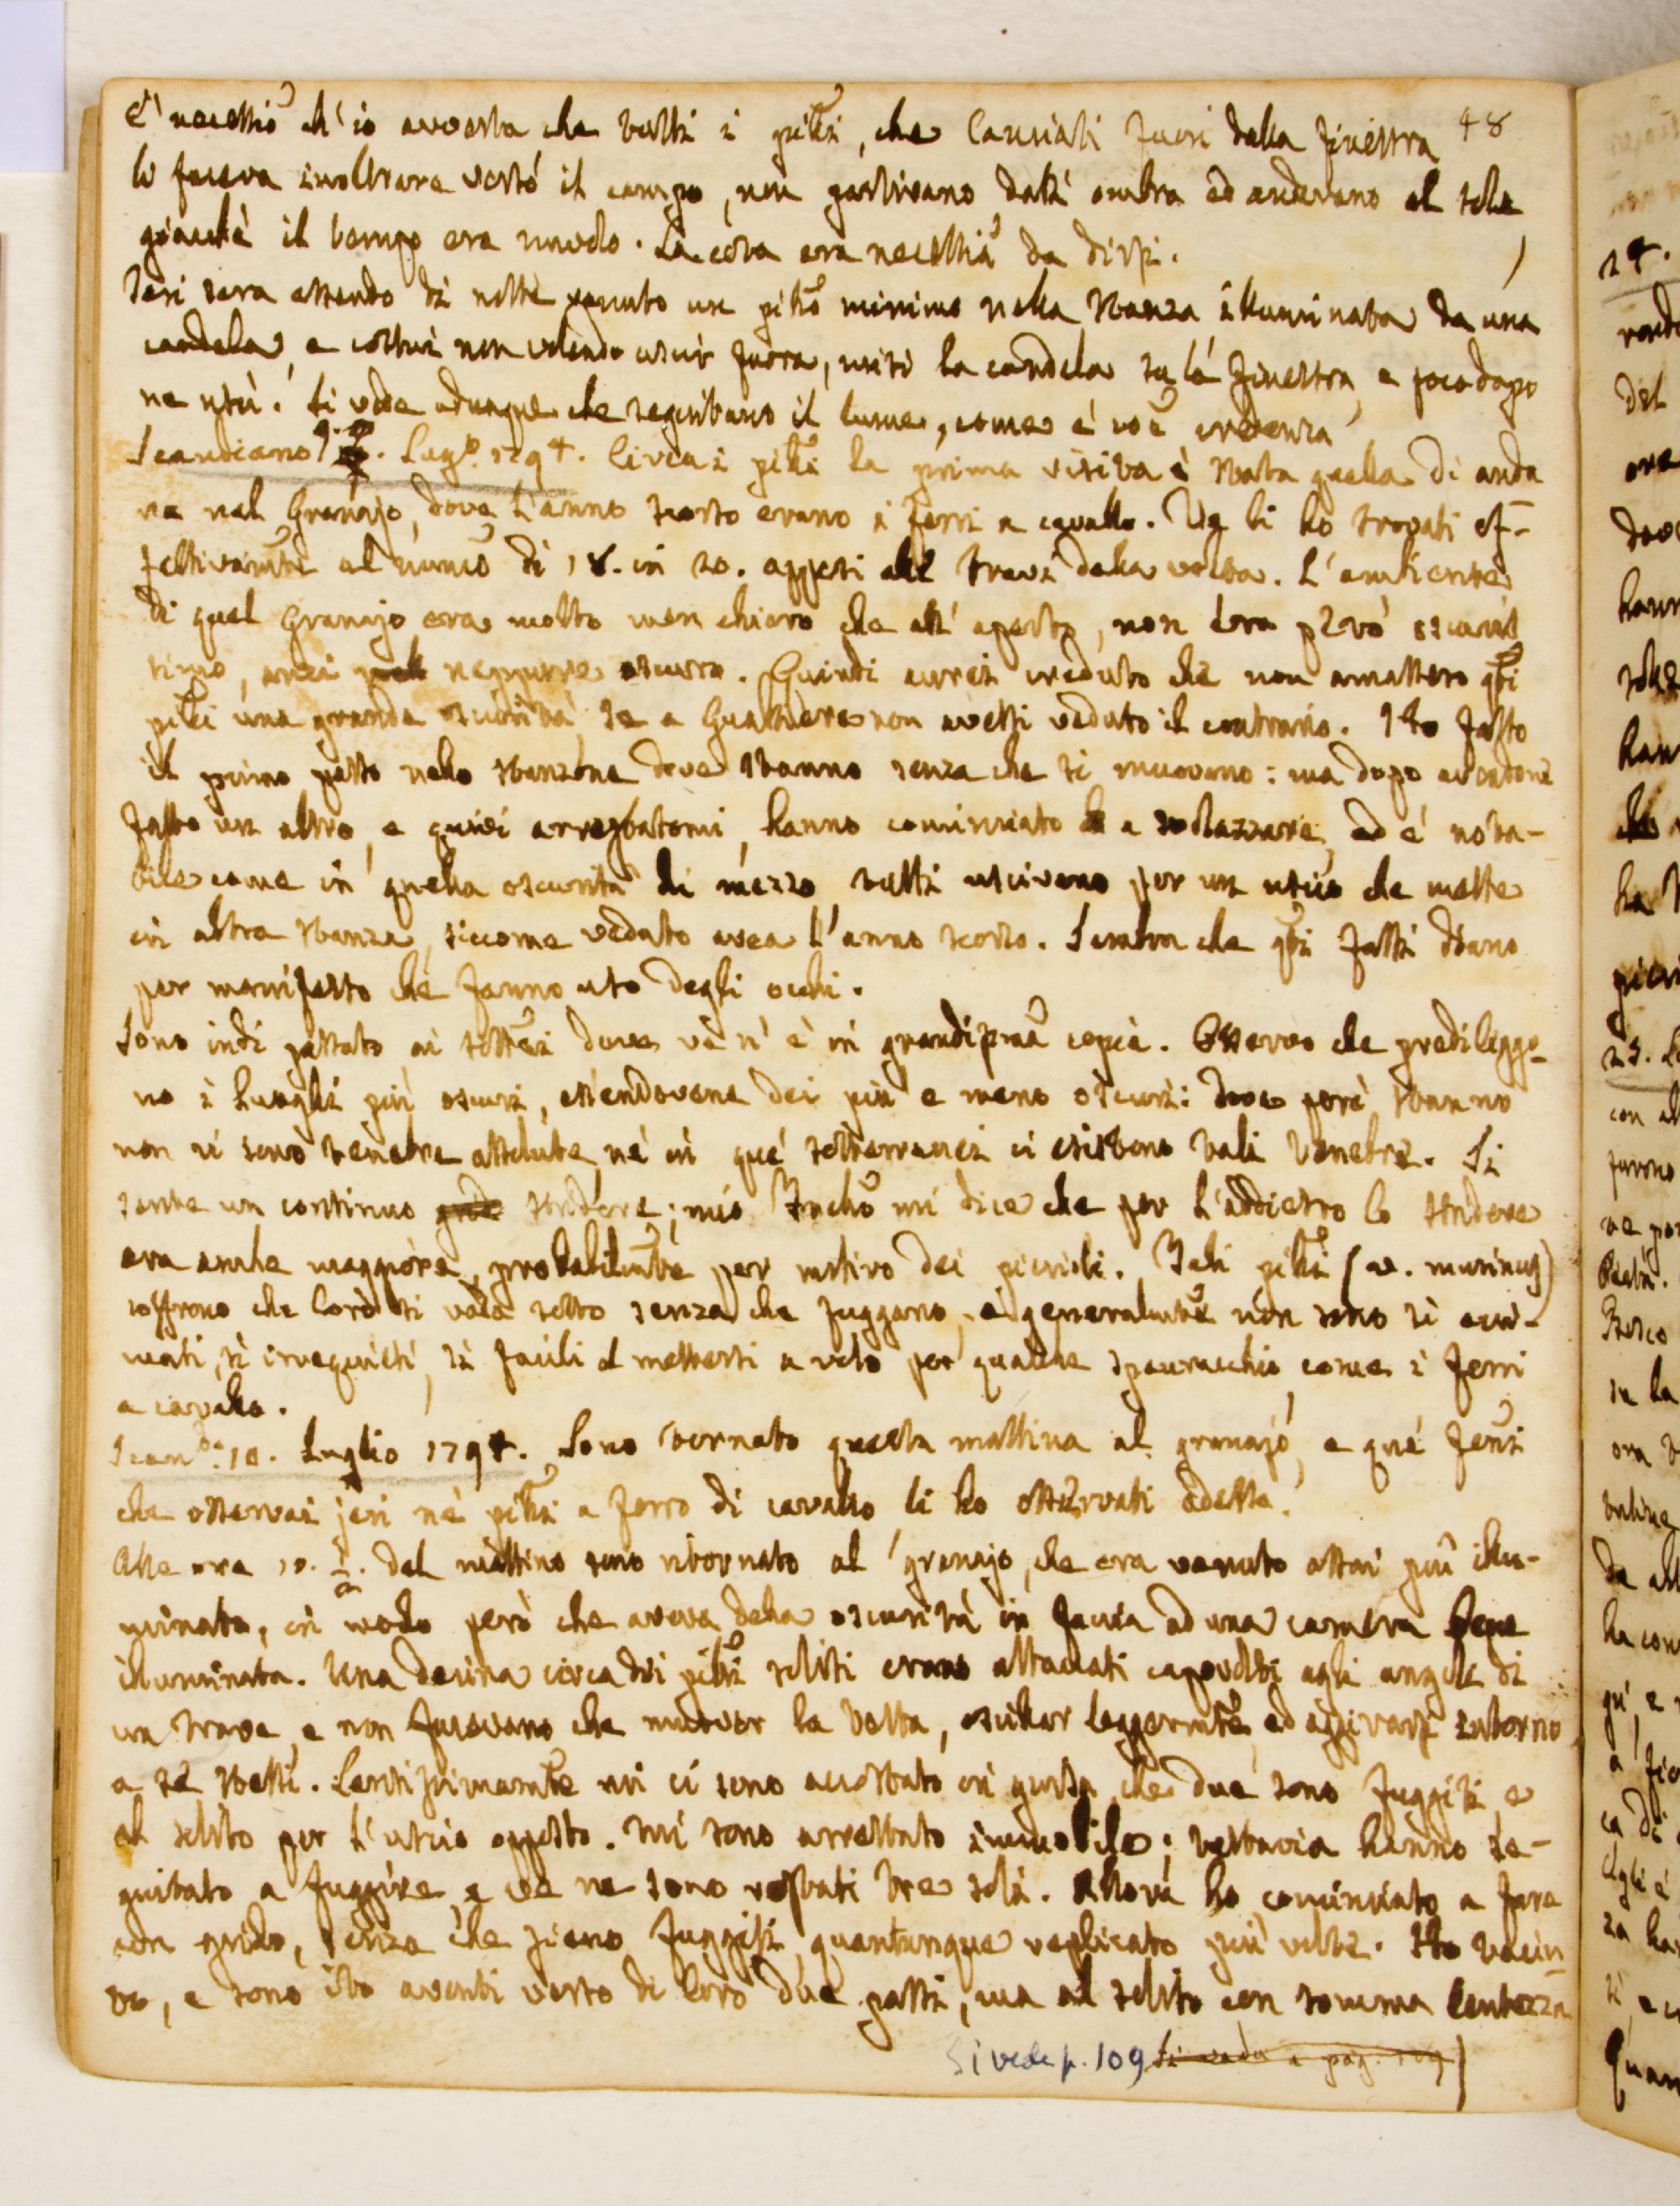 48
E' necessio ch'io avverta che tutti i pipⁱ, che lanciati fuori dalla finestra
lo faceva inoltrare verso il campo, non partivano dall'ombra ed andavano al sole
giacchè il tempo era nuvolo. La cosa era necessia da dirsi.
Jeri sera essendo di notte venuto un pipⁱᵒ minimo nella stanza illuminata da una
candela, e costui non volendo uscir fuora, misi la candela su la finestra, e poco dopo
ne uscì. Si vede adunque che seguitano il lume, come è coe credenza
Scandiano 9. Lugᵒ. 1794. Circa i pipⁱ la prima visita è stata quella di anda
re nel Granajo, dove l'anno scorso erano i ferri a cavallo. Ve li ho trovati ef-
fettivamte al numo di 18. in 20. appesi alle travi della volta. L'ambiente
di quel Granajo era molto men chiaro che all'aperto, non era però oscuris
simo, anzi neppure oscuro. Quindi avrei creduto che non amassero qti
pipⁱ una grande oscurità, se a Gualtiere non avessi veduto il contrario. Ho fatto
il primo passo nello stanzone dove stanno senza che si muovano: ma dopo avendone
fatto un altro, e quivi arrestatomi, hanno cominciato a svolazzare, ed è nota-
bile come in quella oscurità di mezzo tutti uscivano per un uscio che mette
in altra stanza, siccome veduto avea l'anno scorso. Sembra che qti fatti diano
per manifesto che fanno uso degli occhi.
Sono indi passato ai sottei dove ve n'è in grandissma copia. Osservo che prediliggo-
no i luoghi più oscuri, essendovene dei più e meno oscuri: dove però stanno
non vi sono tenebre assolute, nè in que' sotterranei ci esistono tali tenebre. Si
sente un continuo stridere; mio Frello mi dice che per l'addietro lo stridere
era anche maggiore, probabilmte per motivo dei piccioli. Tali pipⁱ (v. murinus)
soffrono che loro si vada sotto senza che fuggano, e generalmte non sono sì ani-
mati, sì irrequieti, sì facili a mettersi a volo per qualche spauracchio come i ferri
a cavallo.
Scanᵈᵒ. 10. Luglio 1794. Sono tornato questa mattina al granajo, e que' feni
che osservai jeri ne' pipⁱ a ferro di cavallo li ho osservati adesso.
Alle ore 10. ½. del mattino sono ritornato al granajo, che era venuto assai più illu-
minato, in modo però che aveva della oscurità in faccia ad una camera bene
illuminata. Una decina circa dei pipⁱ soliti erano attaccati capovolti agli angoli di
un trave, e non facevano che muover la testa, oscillar leggermte, ed aggirarsi intorno
a se stessi. Lentissimamte mi ci sono accostato in guisa che due sono fuggiti, e
al solito per l'uscio opposto. Mi sono arrestato immobile; tuttavia hanno se-
guitato a fuggire, e ve ne sono restati tre soli. Allora ho cominciato a fare
alcun grido, senza che sieno fuggiti, quantunque replicato più volte. Ho taciu-
to, e sono ito avanti verso di loro due passi, ma al solito con somma lentezza
Si vede p. 109 Si veda a pag. 109)